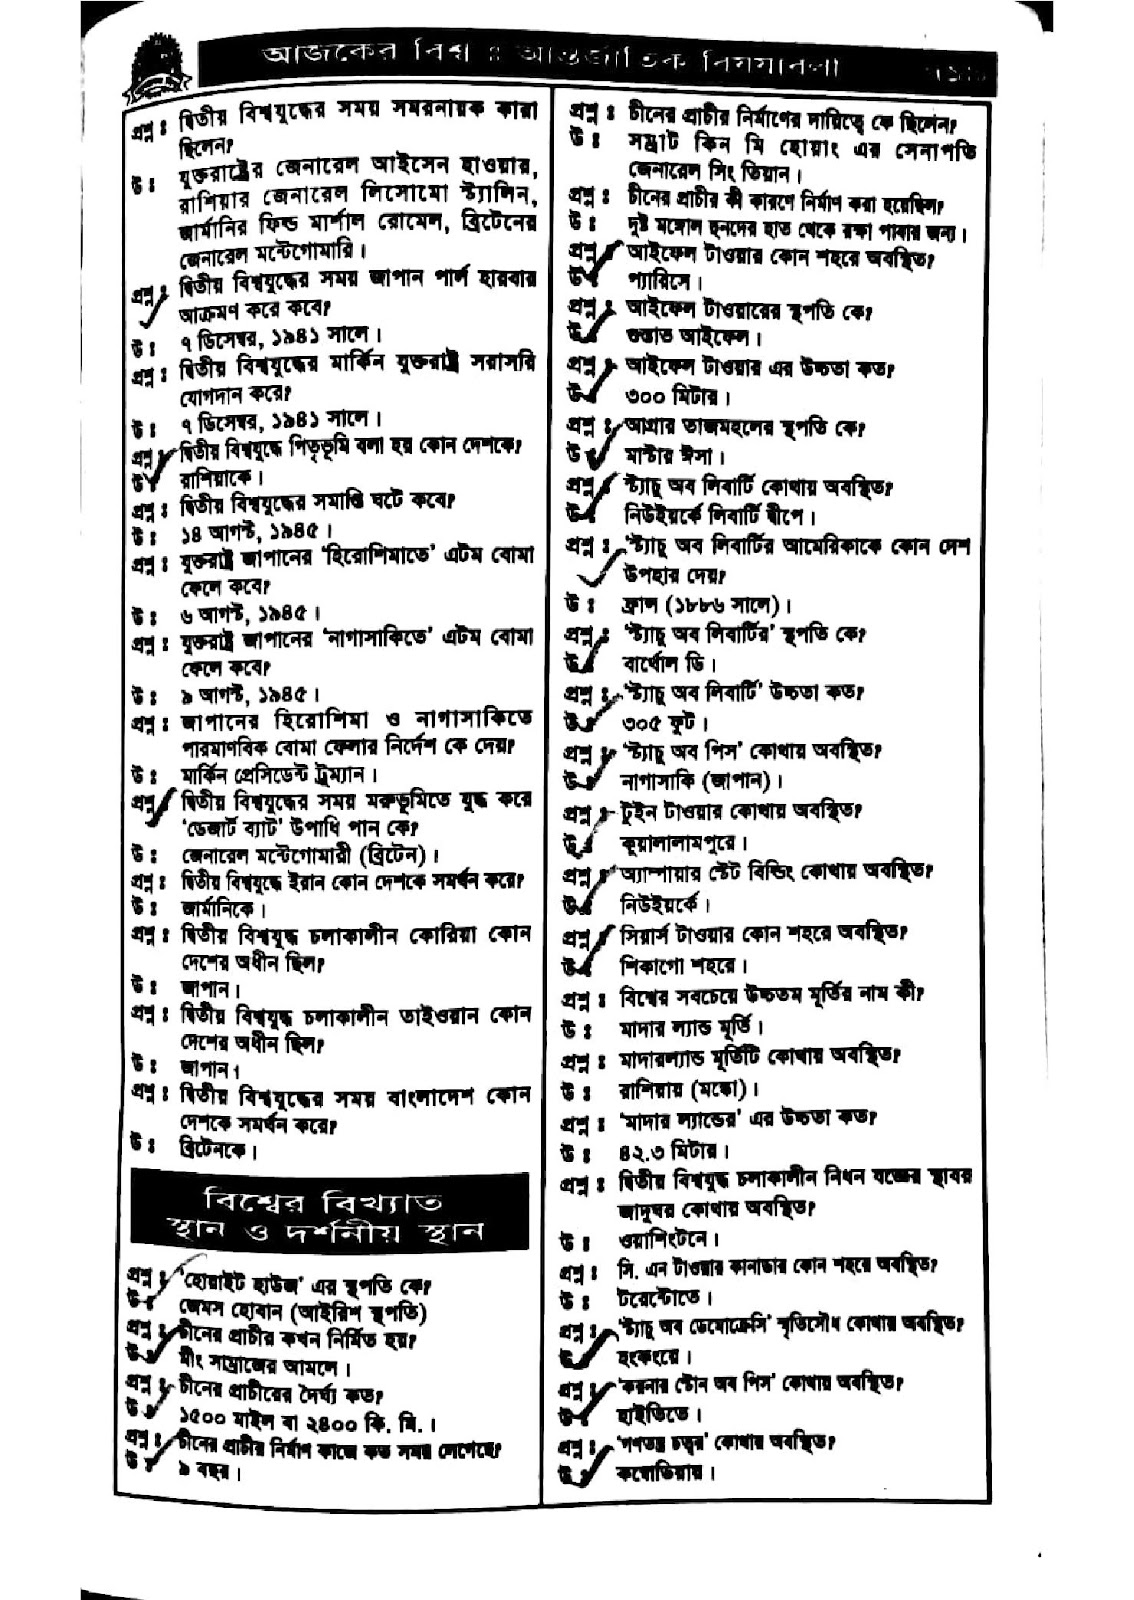 আজকের বিশ্ব ঃ আন্তর্জাতিক বিষয়াবলী
প্রশ্ন ঃ দ্বিতীয় বিশ্বযুদ্ধের সময় সমরনায়ক কারা
ছিলেন?
উ ঃ যুক্তরাষ্ট্রের জেনারেল আইসেন হাওয়ার,
রাশিয়ার জেনারেল লিসোমো স্ট্যালিন,
জার্মানির ফিল্ড মার্শাল রোমেল, ব্রিটেনের
জেনারেল মন্টেগোমারি।
প্রশ্ন ঃ দ্বিতীয় বিশ্বযুদ্ধের সময় জাপান পার্ল হারবার
আক্রমণ করে কবে?
উ ঃ ৭ ডিসেম্বর, ১৯৪১ সালে।
প্রশ্ন ঃ দ্বিতীয় বিশ্বযুদ্ধের মার্কিন যুক্তরাষ্ট্র সরাসরি
যোগদান করে?
উ ঃ ৭ ডিসেম্বর, ১৯৪১ সালে।
প্রশ্ন ঃ দ্বিতীয় বিশ্বযুদ্ধে পিতৃভূমি বলা হয় কোন দেশকে?
উ ঃ রাশিয়াকে।
প্রশ্ন ঃ দ্বিতীয় বিশ্বযুদ্ধের সমাপ্তি ঘটে কবে?
উ ঃ ১৪ আগস্ট, ১৯৪৫।
প্রশ্ন ঃ যুক্তরাষ্ট্র জাপানের ‘হিরোশিমাতে’ এটম বোমা
ফেলে কবে?
উ ঃ ৬ আগস্ট, ১৯৪৫।
প্রশ্ন ঃ যুক্তরাষ্ট্র জাপানের ‘নাগাসাকিতে’ এটম বোমা
ফেলে কবে?
উ ঃ ৯ আগস্ট, ১৯৪৫।
প্রশ্ন ঃ জাপানের হিরোশিমা ও নাগাসাকিতে
পারমাণবিক বোমা ফেলার নির্দেশ কে দেয়?
উ ঃ মার্কিন প্রেসিডেন্ট ট্রুম্যান।
প্রশ্ন ঃ দ্বিতীয় বিশ্বযুদ্ধের সময় মরুভূমিতে যুদ্ধ করে
‘ডেজার্ট ব্যাট’ উপাধি পান কে?
উ ঃ জেনারেল মন্টেগোমারী (ব্রিটেন)।
প্রশ্ন ঃ দ্বিতীয় বিশ্বযুদ্ধে ইরান কোন দেশকে সমর্থন করে?
উ ঃ জার্মানিকে।
প্রশ্ন ঃ দ্বিতীয় বিশ্বযুদ্ধ চলাকালীন কোরিয়া কোন
দেশের অধীন ছিল?
উ ঃ জাপান।
প্রশ্ন ঃ দ্বিতীয় বিশ্বযুদ্ধ চলাকালীন তাইওয়ান কোন
দেশের অধীন ছিল?
উ ঃ জাপান।
প্রশ্ন ঃ দ্বিতীয় বিশ্বযুদ্ধের সময় বাংলাদেশ কোন
দেশকে সমর্থন করে?
উ ঃ ব্রিটেনকে।
বিশ্বের বিখ্যাত
স্থান ও দর্শনীয় স্থান
প্রশ্ন ঃ ‘হোয়াইট হাউজ’ এর স্থপতি কে?
উ ঃ জেমস হোবান (আইরিশ স্থপতি)
প্রশ্ন ঃ চীনের প্রাচীর কখন নির্মিত হয়?
উ ঃ মীং সাম্রাজের আমলে।
প্রশ্ন ঃ চীনের প্রাচীরের দৈর্ঘ্য কত?
উ ঃ ১৫০০ মাইল বা ২৪০০ কি. মি.।
প্রশ্ন ঃ চীনের প্রাচীর নির্মাণ কাজে কত সময় লেগেছে?
উ ঃ ৯ বছর।
প্রশ্ন ঃ চীনের প্রাচীর নির্মাণের দায়িত্বে কে ছিলেন?
উ ঃ সম্রাট কিন মি হোয়াং এর সেনাপতি
জেনারেল সিং তিয়ান।
প্রশ্ন ঃ চীনের প্রাচীর কী কারণে নির্মাণ করা হয়েছিল?
উ ঃ দুষ্ট মঙ্গোল হুনদের হাত থেকে রক্ষা পাবার জন্য।
প্রশ্ন ঃ আইফেল টাওয়ার কোন শহরে অবস্থিত?
উ ঃ প্যারিসে।
প্রশ্ন ঃ আইফেল টাওয়ারের স্থপতি কে?
উ ঃ গুস্তাভ আইফেল।
প্রশ্ন ঃ আইফেল টাওয়ার এর উচ্চতা কত?
উ ঃ ৩০০ মিটার।
প্রশ্ন ঃ আগ্রার তাজমহলের স্থপতি কে?
উ ঃ মাস্টার ঈসা।
প্রশ্ন ঃ স্ট্যাচু অব লিবার্টি কোথায় অবস্থিত?
উ ঃ নিউইয়র্কে লিবার্টি দ্বীপে।
প্রশ্ন ঃ ‘স্ট্যাচু অব লিবার্টির আমেরিকাকে কোন দেশ
উপহার দেয়?
উ ঃ ফ্রান্স (১৮৮৬ সালে)।
প্রশ্ন ঃ ‘স্ট্যাচু অব লিবার্টির’ স্থপতি কে?
উ ঃ বার্থোল ডি।
প্রশ্ন ঃ ‘স্ট্যাচু অব লিবার্টি’ উচ্চতা কত?
উ ঃ ৩০৫ ফুট।
প্রশ্ন ঃ ‘স্ট্যাচু অব পিস’ কোথায় অবস্থিত?
উ ঃ নাগাসাকি (জাপান)।
প্রশ্ন ঃ টুইন টাওয়ার কোথায় অবস্থিত?
উ ঃ কুয়ালালামপুরে।
প্রশ্ন ঃ অ্যাম্পায়ার স্টেট বিল্ডিং কোথায় অবস্থিত?
উ ঃ নিউইয়র্কে।
প্রশ্ন ঃ সিয়ার্স টাওয়ার কোন শহরে অবস্থিত?
উ ঃ শিকাগো শহরে।
প্রশ্ন ঃ বিশ্বের সবচেয়ে উচ্চতম মূর্তির নাম কী?
উ ঃ মাদার ল্যান্ড মূর্তি।
প্রশ্ন ঃ মাদারল্যান্ড মূর্তিটি কোথায় অবস্থিত?
উ ঃ রাশিয়ায় (মস্কো)।
প্রশ্ন ঃ ‘মাদার ল্যান্ডের’ এর উচ্চতা কত?
উ ঃ ৪২.৩ মিটার।
প্রশ্ন ঃ দ্বিতীয় বিশ্বযুদ্ধ চলাকালীন নিধন যজ্ঞের স্থাবর
জাদুঘর কোথায় অবস্থিত?
উ ঃ ওয়াশিংটনে।
প্রশ্ন ঃ সি. এন টাওয়ার কানাডার কোন শহরে অবস্থিত?
উ ঃ টরেন্টোতে।
প্রশ্ন ঃ ‘স্ট্যাচু অব ডেমোক্রেসি’ স্মৃতিসৌধ কোথায় অবস্থিত?
উ ঃ হংকংয়ে।
প্রশ্ন ঃ ‘করনার স্টোন অব পিস’ কোথায় অবস্থিত?
উ ঃ হাইতিতে।
প্রশ্ন ঃ ‘গণতন্ত্র চত্বর’ কোথায় অবস্থিত?
উ ঃ কম্বোডিয়ায়।